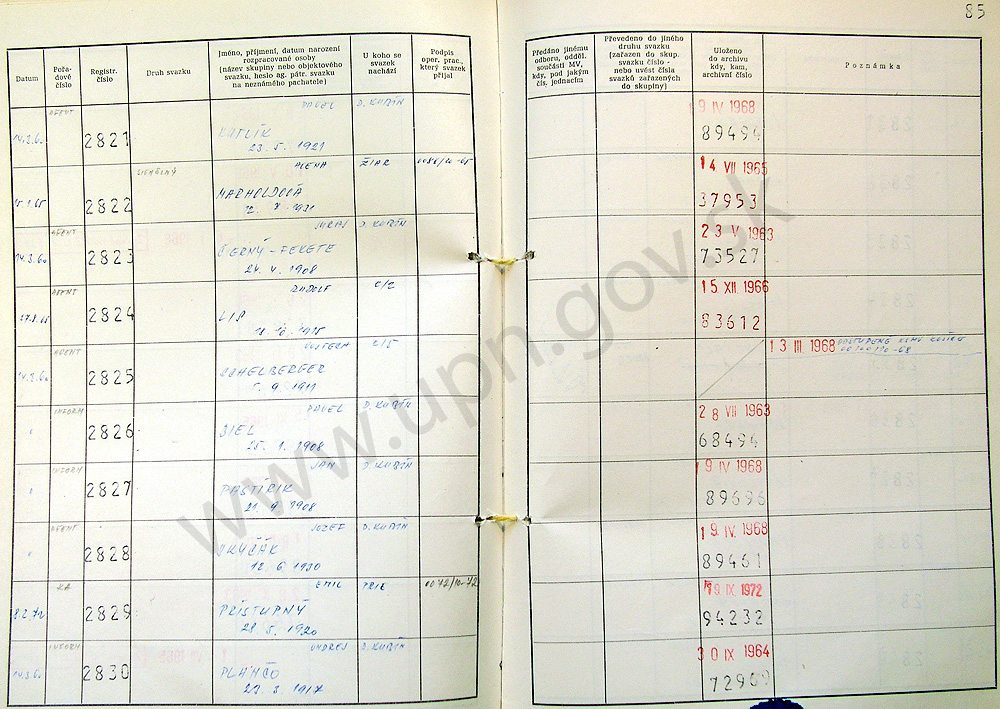 85
Datum
Pořa-
dové
číslo
Registr.
číslo
Druh svazku
Jméno, příjmení, datum narození
rozpracované osoby
(název skupiny nebo objektového
svazku, heslo ag. pátr. svazku
na neznámého pachatele)
U koho se
svazek
nachází
Podpis
oper. prac.,
který svazek
přijal
Předáno jinému
odboru, odděl.
součásti MV,
kdy, pod jakým
čís. jednacím
Převedeno do jiného
druhu svazku
(zařazen do skup.
svazku číslo -
nebo uvést čísla
svazků zařazených
do skupiny)
Uloženo
do archivu
kdy, kam,
archivní číslo
Poznámka
AGENT PAVEL D. KUBÍN 19 IV 1968
14.3.60 2821 KUTLÍK 89494
23. 5. 1921
ALENA ŽIAR 14 VII 1965
2822 MARHOLDOVÁ 37953
1931
AGENT JURAJ D. KUBÍN 23 V 1963
14.3.60 2823 ČIERNÝ-FEKETE 73527
24. V. 1908
AGENT RUDOLF 15 XII. 1966
2824 LIP 83612
AGENT VOJTECH 13 III. 1968
14.3.60 2825 SCHELBERGER
5. 9. 1911
INFORM PAVEL D. KUBÍN 28 VII 1963
2826 BIEL 68494
25. 1. 1908
INFORM JAN D. KUBÍN 19 IV 1968
2827 PASTÍRIK 89696
21. 9. 1908
AGENT JOZEF D. KUBÍN 19 IV. 1968
2828 SKYČÁK 89461
12. 6. 1930
KA EMIL 19 IX 1972
8.2.72 2829 PRÍSTUPNÝ 94232
28. 5. 1920
INFORM ONDREJ D. KUBÍN 30 IX 1964
2830 PLANČO 72969
1917
www.upn.gov.sk